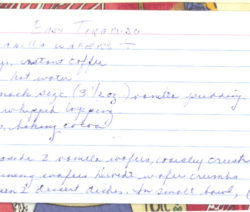 Easy Tiramisu
vanilla wafers
instant coffee
hot water
snack size (3 1/2 oz) vanilla pudding
whipped topping
baking cocoa
2 vanilla wafers, coarsely crush
wafers wafer crumbs
2 dessert dishes. In small bowl,